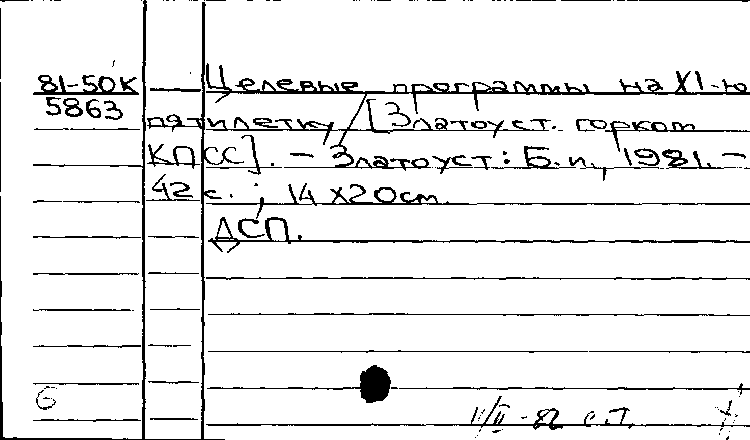 81-50К Целевые программы на XI-ю
5863 пятилетку / [Златоуст. горком
КПСС]. – Златоуст: Б. и., 1981. –
42 с. ; 14 X 20 см.
ДСП.
6
11/II-82 с.П.